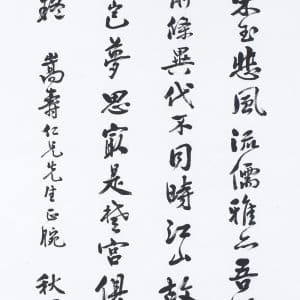 玉悲風流儒雅亦吾
條異代不同時江山故
豈夢思㝡是楚宮俱
嵩壽仁兄先生正腕 秋